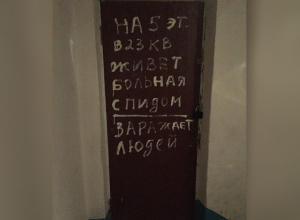 НА 5 ЭТ.
В 23 КВ
ЖИВЕТ
БОЛЬНАЯ
СПИДОМ
ЗАРАЖАЕТ
ЛЮДЕЙ